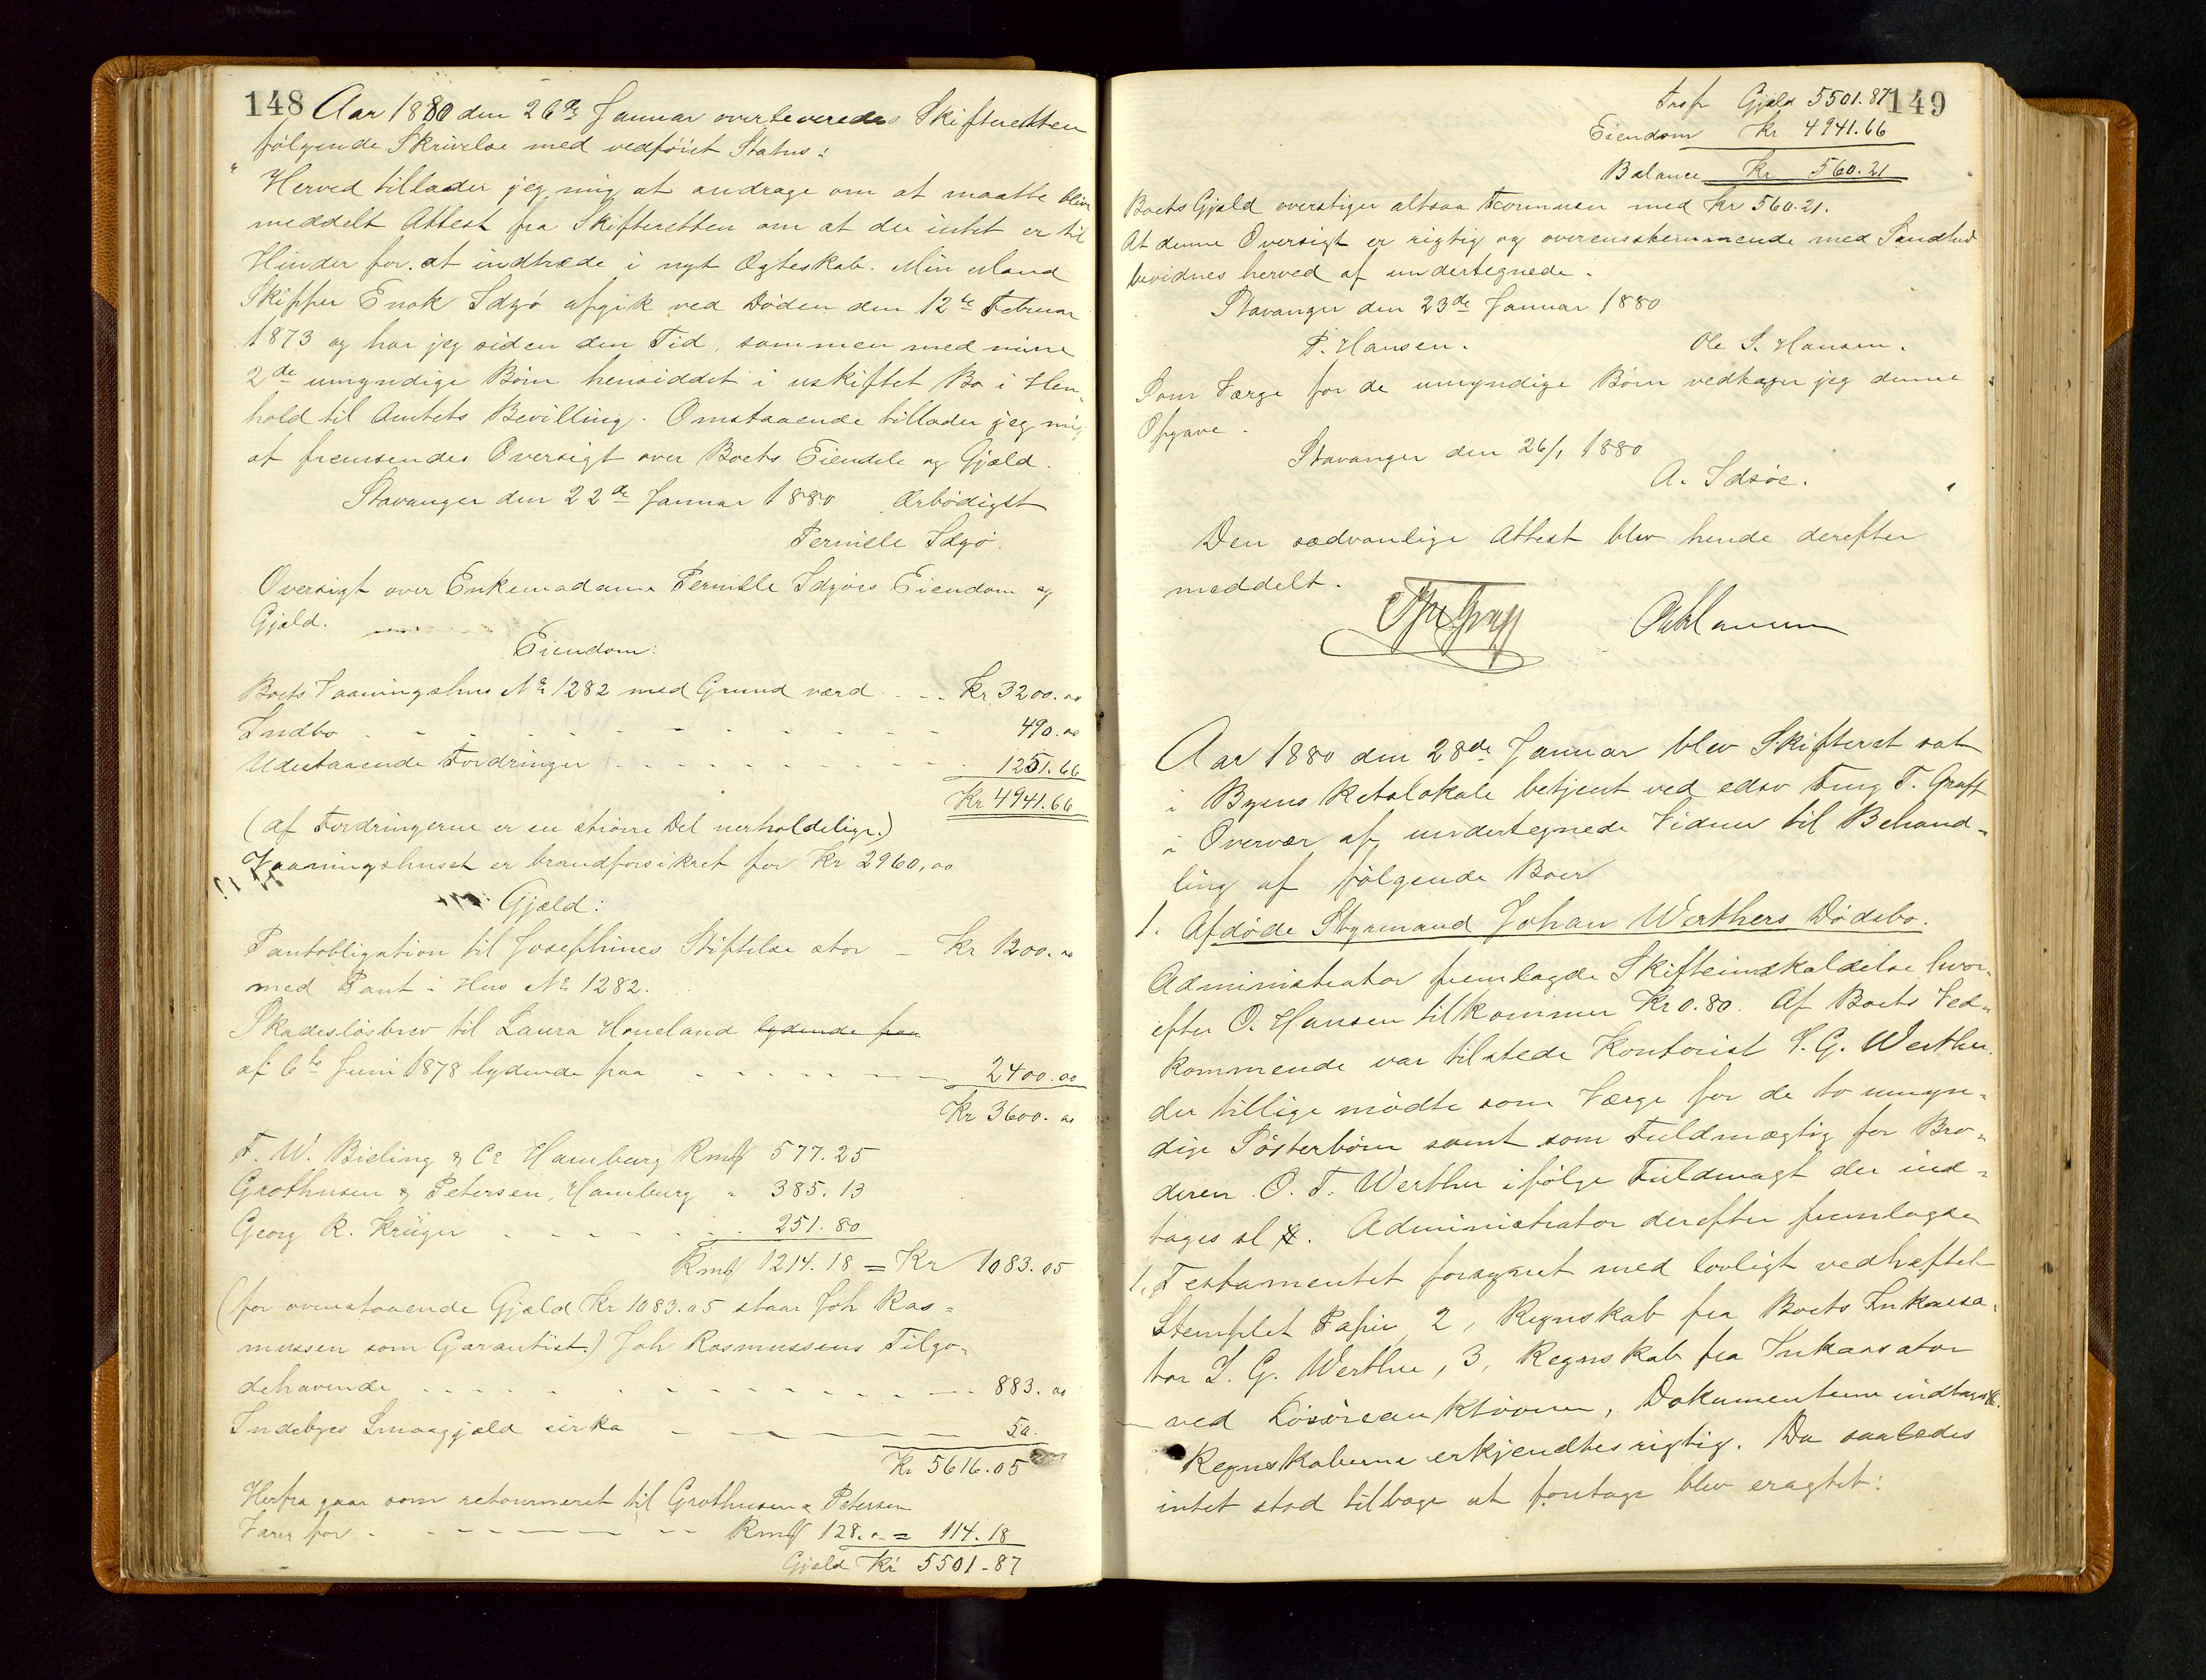 148 Aar 1880 den 26de Januar overleveredes Skifteretten
følgende Skrivelse med vedføiet Status:
"Herved tillader jeg mig at andrage om at maatte blive
meddelt Attest fra Skifteretten om at der intet er til
Hinder for at indtræde i nyt Ægteskab. Min Mand
Skipper Enok Idzø afgik ved Døden den 12te Februar
1873 og har jeg siden den Tid, sammen med mine
2de umyndige Børn hensiddet i uskiftet Bo i Hen-
hold til Amtets Bevilling. Omstaaende tillader jeg mig
at fremsendes Oversigt over Boets Eiendele og Gjæld.
Stavanger den 22de Januar 1880 Ærbødigst
Pernille Idzø.
Oversigt over Enkemadame Pernille Idzøes Eiendom og
Gjæld.
Eiendom:
Boets Vaaningshus No 1282 med Grund værd - - Kr 3200.00
Indbo - - - - - - - - - 490.00
Udestaaende Fordringer - - - - - - - 1251.66
Kr 4941.66
(Af Fordringerne er en større Del uerholdelige.)
Vaaningshuset er brandforsikret for Kr 2960,00
Gjæld:
Pantobligation til Josephines Stiftelse stor - Kr 1200.00
med Pant i Hus No 1282.
Skadesløsbrev til Laura Haneland lydende paa
af 6te Juni 1878 lydende paa - - - - - 2400.00
Kr 3600.00
F. W. Bieling & Co Hamburg Rmk 577.25
Grothusen & Petersen, Hamburg " 385.13
Georg R. Krüger - - - - - 251.80
Rmk 1214.18 = Kr 1083.05
(for ovenstaaende Gjæld Kr 1083.05 staar Joh Ras=
mussen som Garantist.) Joh Rasmussens Tilgo-
dehavende - - - - - - - - - 883.00
Indebyes Smaagjæld cirka - - - - - 50.
Kr 5616.05
Herfra gaar som retourneret til Grothusen & Petersen
Varer for - - - - - - Rmk 128.00 = 114.18
Gjæld Kr 5501-87
149
Trsp Gjæld 5501.87
Eiendom Kr 4941.66
Balance Kr 560.21
Boets Gjæld overstiger altsaa Formuen med Kr 560.21.
At denne Oversigt er rigtig og overensstemmende med Sandhed
bevidnes herved af undertegnede.
Stavanger den 23de Januar 1880
P. Hansen. Ole S. Hansen.
Som Værge for de umyndige Børn vedtager jeg denne
Opgave.
Stavanger den 26/1 1880
A. Idsøe.
Den sædvanlige Attest blev hende derefter
meddelt.
Aar 1880 den 28de Januar blev Skifteret sat
i Byens Retslokale betjent ved edsv Fmg T. Graff
i Overvær af undertegnede Vidner til Behand-
ling af følgende Boer
1. Afdøde Styrmand Johan Werthers Dødsbo.
Administrator fremlagde Skifteindkaldelse hvor-
efter O. Hansen tilkommer Kr 0.80. Af Boets Ved-
kommende var tilstede Kontorist I. G. Werther
der tillige mødte som Værge for de to umyn-
dige Søsterbørn samt som Fuldmægtig for Bro-
deren O. T. Werther ifølge Fuldmagt der ind-
tages sl #. Administrator derefter fremlagde
1, Testamentet forsynet med lovligt vedhæftet
Stemplet Papir 2, Regnskab fra Boets Inkassa-
tor I. G. Werther, 3, Regnskab fra Inkassator
ved Løsøreauktionen, Dokumenterne indtages #.
Regnskaberne erkjendtes rigtig. Da saaledes
intet stod tilbage at foretage blev eragtet: